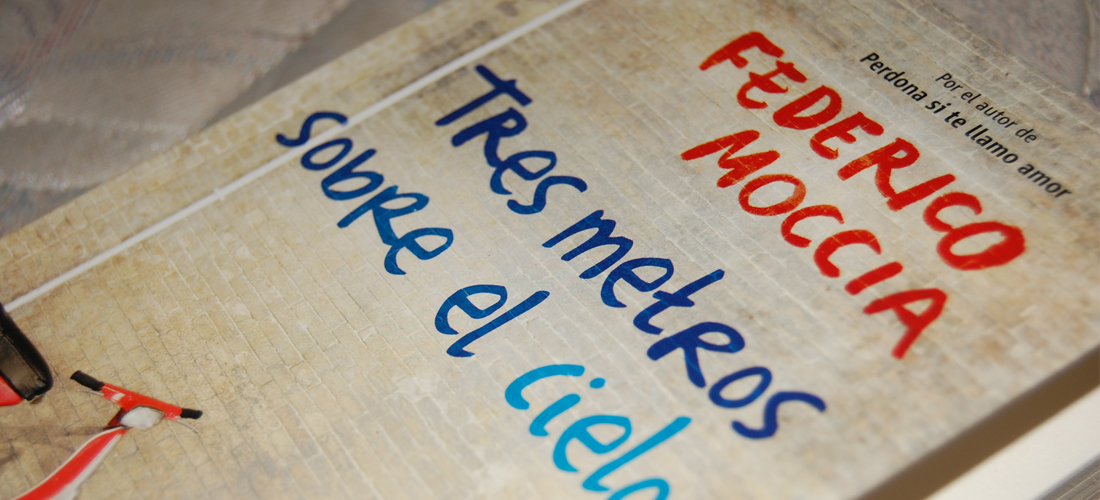 Por el autor de
Perdona si te llamo amor
FEDERICO
MOCCIA
Tres metros
sobre el cielo